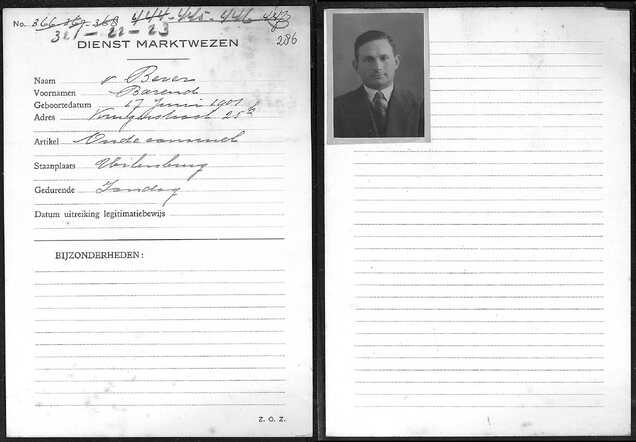 No. 366-367-368 444-445-446
321-22-23
286
DIENST MARKTWEZEN
Naam v Bever
Voornamen Barend
Geboortedatum 17 Juni 1901
Adres Krugerstraat 25
Artikel
Staanplaats Uilenburg
Gedurende Zondag
Datum uitreiking legitimatiebewijs
BIJZONDERHEDEN:
Z. O. Z.